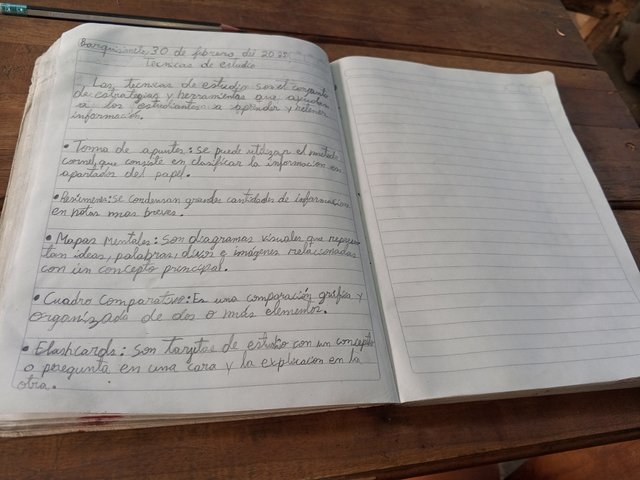 Barquisimeto 30 de febrero del 2025
Tecnicas de estudio
Las tecnicas de estudio son el conjunto
de estrategias y herramientas que ayudan
a los estudiantes a aprender y retener
información.
• Toma de apuntes: se puede utilizar el metodo
cornel, que consiste en clasificar la informacion en
apartados del papel.
• Resúmenes: se condensan grandes cantidades de informacion
en notas mas breves.
• Mapas Mentales: son diagramas visuales que represen
tan ideas, palabras, e imágenes relacionadas
con un concepto principal.
• Cuadro Comparativo: Es una comparación gráfica y
organizada de dos o más elementos.
• Flashcards: son tarjetas de estudio con un concepto
o peregunta en una cara y la explicacion en la
otra.